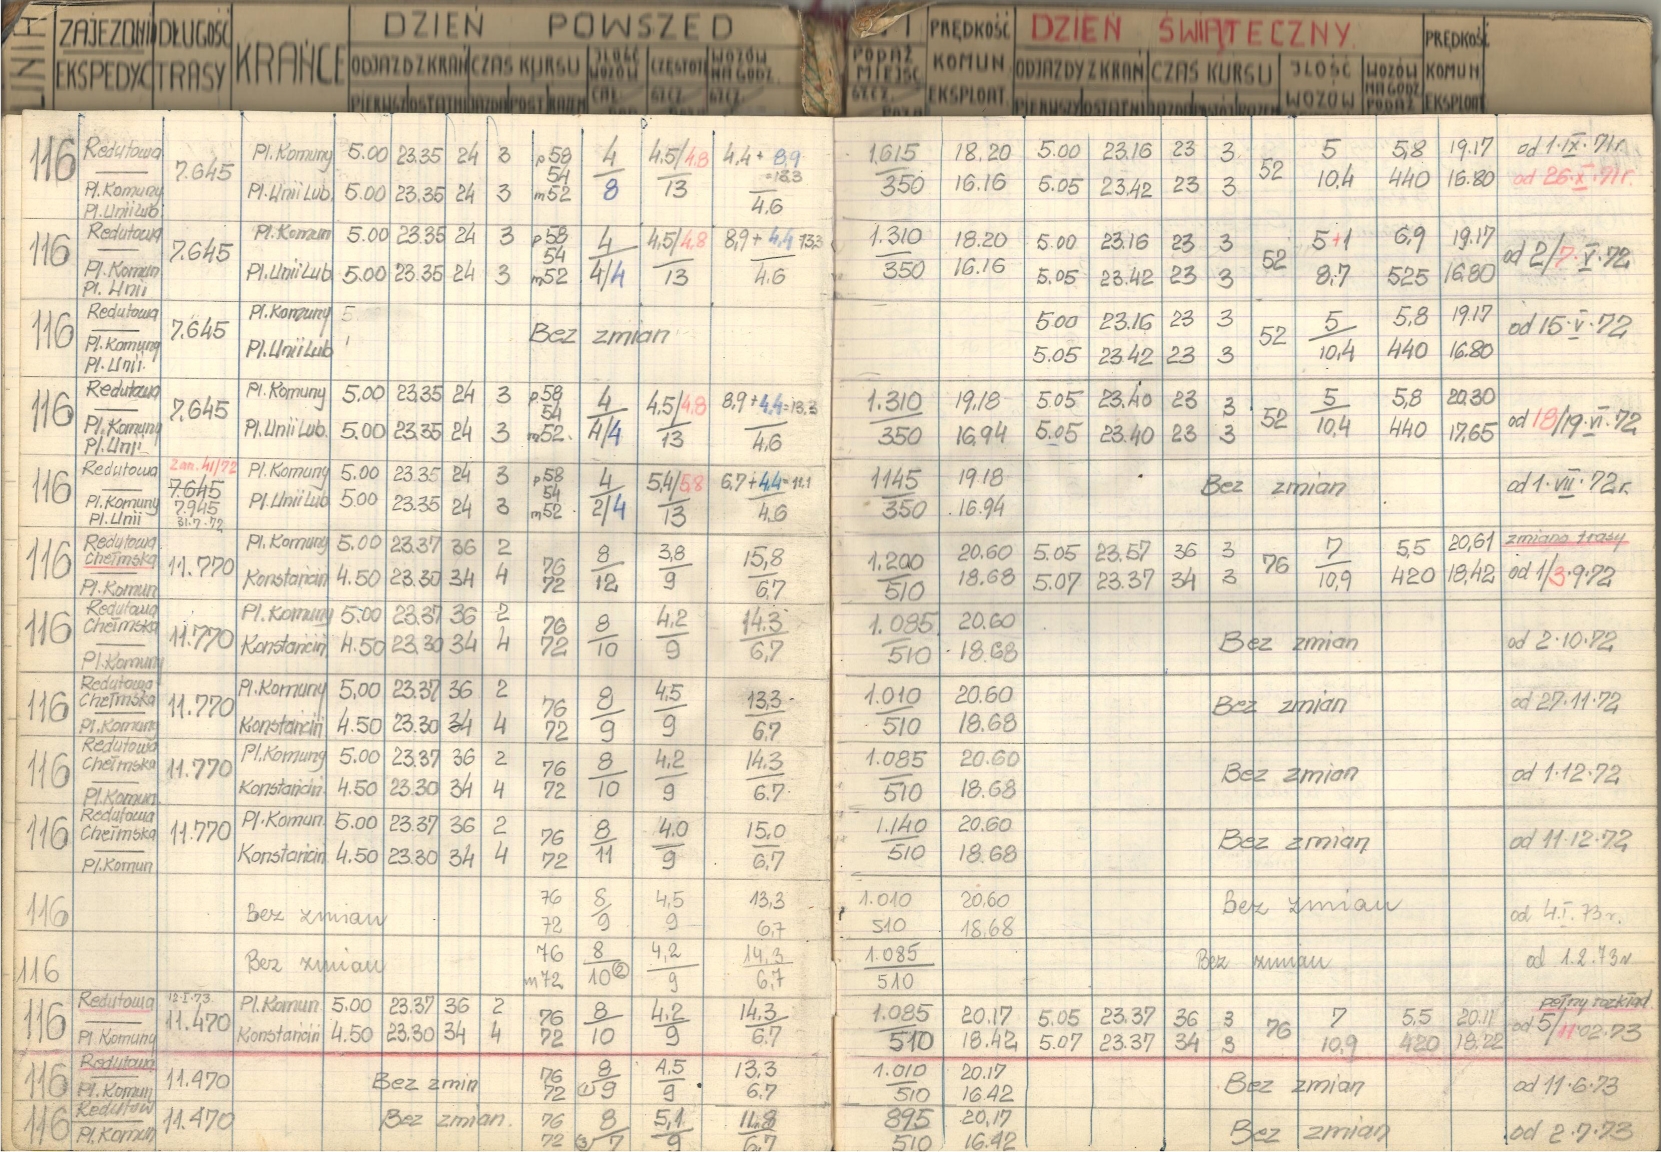 LINIA ZAJEZDN DŁUGOŚĆ KRAŃCE DZIEŃ POWSZED PRĘDKOŚĆ DZIEŃ ŚWIĄTECZNY PRĘDKOŚĆ
EKSPEDYC TRASY ODJAZD Z KRAŃ CZAS KURSU ILOŚĆ WOZÓW CZĘSTOTL WOZÓW NA GODZ. PODAŻ MIEJSC KOMUN ODJAZDY Z KRAŃ CZAS KURSU ILOŚĆ WOZÓW WOZÓW NA GODZ PODAŻ KOMUN
PIERWSZ OSTATNI JAZDA POST RAZEM CAŁ. SZCZ. SZCZ. SZCZ. EKSPLOAT. PIERWSZY OSTATNI JAZDA POSTÓJ RAZEM EKSPLOAT
116 Redutowa 7.645 Pl. Komuny 5.00 23.35 24 3 p58 4 4,5/4,8 4,4+8,9 1.615 18.20 5.00 23.16 23 3 52 5 5,8 19.17 od 1·IX·71r.
54 =13,3
Pl. Komuny Pl. Unii Lub. 5.00 23.35 24 3 m52 8 13 4,6 350 16.16 5.05 23.42 23 3 10,4 440 16.80 od 26·X·71r.
Pl. Unii Lub.
116 Redutowa 7.645 Pl. Komun 5.00 23.35 24 3 p58 4 4,5/4,8 8,9+4,4 13,3 1.310 18.20 5.00 23.16 23 3 52 5+1 6,9 19.17 od 2/7·V·72
54
Pl. Komun Pl. Unii Lub 5.00 23.35 24 3 m52 4/4 13 4.6 350 16.16 5.05 23.42 23 3 8,7 525 16.80
Pl. Unii
116 Redutowa 7.645 Pl. Komuny 5 Bez zmian 5.00 23.16 23 3 52 5 5,8 19.17 od 15·V·72
Pl. Komuny Pl. Unii Lub 5.05 23.42 23 3 10,4 440 16.80
Pl. Unii.
116 Redutowa 7.645 Pl. Komuny 5.00 23.35 24 3 p58 4 4,5/4,8 8,9+4,4=13,3 1.310 19,18 5.05 23.40 23 3 52 5 5,8 20,30 od 18/19·VI·72
54
Pl. Komuny Pl. Unii Lub. 5.00 23.35 24 3 m52. 4/4 13 4,6 350 16,94 5.05 23.40 23 3 10,4 440 17,65
Pl. Unii
116 Redutowa Zarz. 41/72 Pl. Komuny 5.00 23.35 24 3 p58 4 5,4/5,8 6,7+4,4=11,1 1145 19.18 Bez zmian od 1·VII·72r.
7.645 54
Pl. Komuny 7.945 Pl. Unii Lub 5.00 23.35 24 3 m52 2/4 13 4,6 350 16.94
Pl. Unii 31·7·72
116 Redutowa 11.770 Pl. Komuny 5.00 23.37 36 2 76 8 3,8 15,8 1.200 20.60 5.05 23.57 36 3 76 7 5,5 20,61 zmiana trasy
Chełmska Konstancin 4.50 23.30 34 4 72 12 9 6,7 510 18.68 5.07 23.37 34 3 10,9 420 18,42 od 1/3·9·72
Pl. Komun
116 Redutowa 11.770 Pl. Komuny 5.00 23.37 36 2 76 8 4,2 14.3 1.085 20.60 Bez zmian od 2·10·72
Chełmska Konstancin 4.50 23.30 34 4 72 10 9 6,7 510 18.68
Pl. Komuny
116 Redutowa 11.770 Pl. Komuny 5.00 23.37 36 2 76 8 4,5 13,3 1.010 20.60 Bez zmian od 27·11·72
Chełmska Konstancin 4.50 23.30 34 4 72 9 9 6.7 510 18.68
Pl. Komuny
116 Redutowa 11.770 Pl. Komuny 5.00 23.37 36 2 76 8 4,2 14.3 1.085 20.60 Bez zmian od 1·12·72
Chełmska Konstancin 4.50 23.30 34 4 72 10 9 6.7 510 18.68
Pl. Komun.
116 Redutowa 11.770 Pl. Komun. 5.00 23.37 36 2 76 8 4.0 15.0 1.140 20.60 Bez zmian od 11·12·72
Chełmska Konstancin 4.50 23.30 34 4 72 11 9 6,7 510 18.68
Pl. Komun
116 Bez zmian 76 8 4,5 13,3 1.010 20,60 Bez zmian od 4.I.73r.
72 9 9 6,7 510 18,68
116 Bez zmian 76 8 4,2 14,3 1.085 Bez zmian od 1.2.73r
m72 10② 9 6,7 510
116 Redutowa 12·I·73 Pl. Komun 5.00 23.37 36 2 76 8 4.2 14,3 1.085 20.17 5.05 23.37 36 3 76 7 5,5 20.11 pełny rozkład
Pl Komuny 11.470 Konstancin 4.50 23.30 34 4 72 10 9 6.7 510 18.42 5.07 23.37 34 3 10,9 420 18,22 od 5/11·02·73
116 Redutowa 11.470 Bez zmin 76 8 4.5 13.3 1.010 20.17 Bez zmian od 11·6·73
Pl. Komun 72 ①9 9 6.7 510 16.42
116 Redutow 11.470 Bez zmian. 76 8 5,1 11,8 895 20,17 Bez zmian od 2·7·73
Pl. Komun 72 ③7 9 6,7 510 16.42